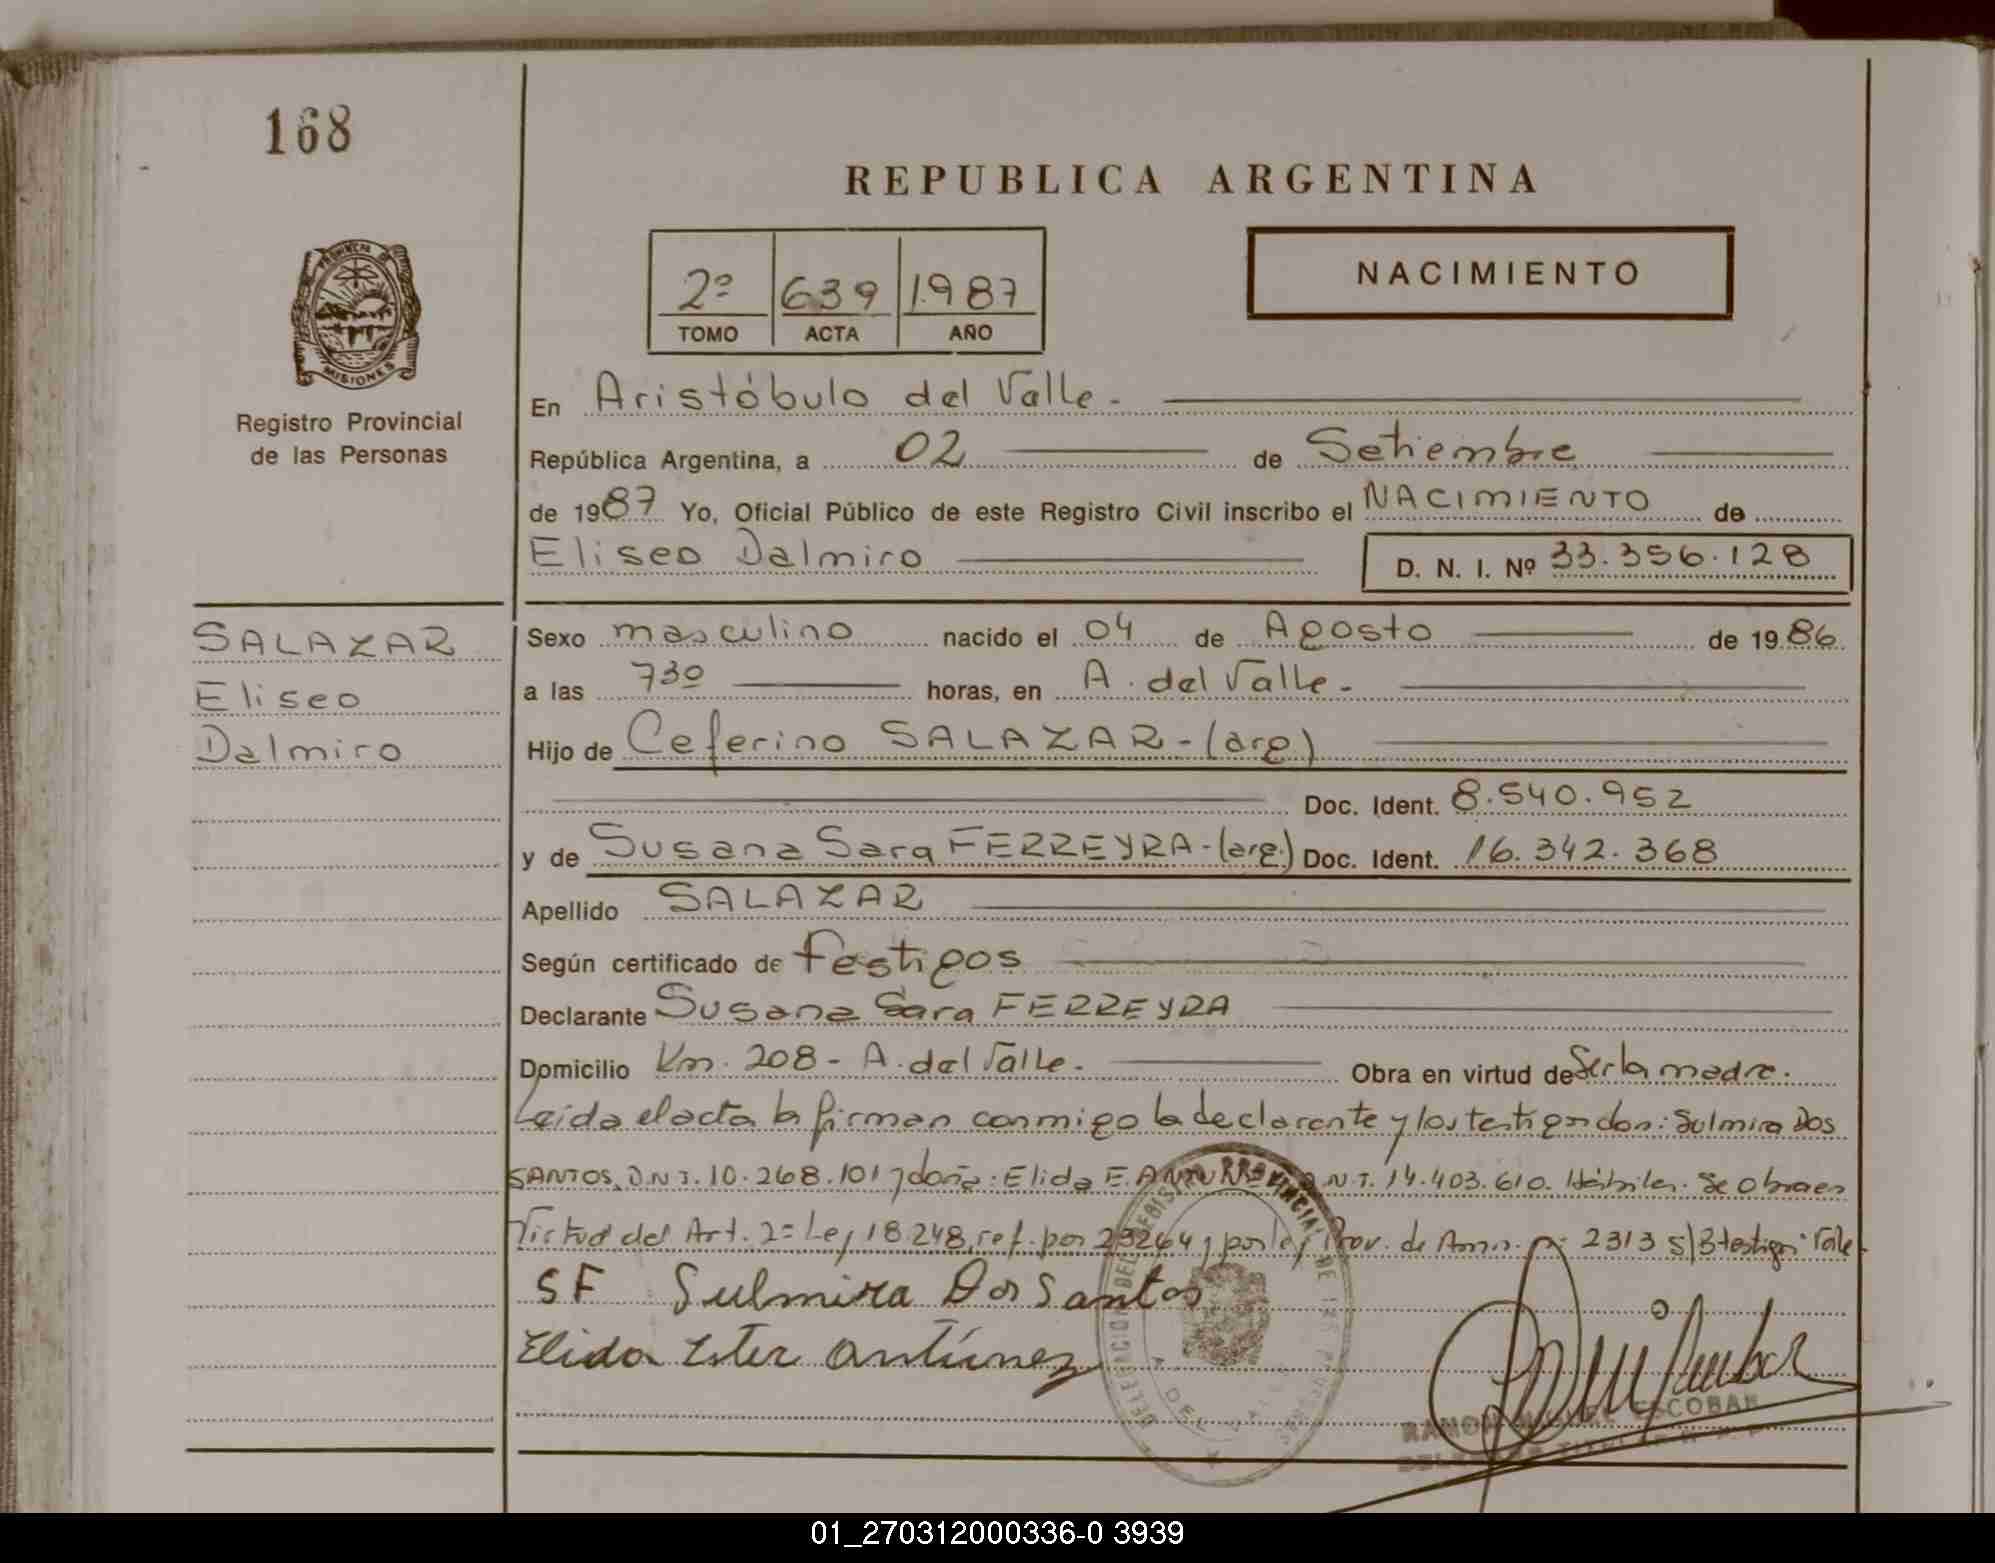 168
REPUBLICA ARGENTINA
NACIMIENTO
2º 639 1987
TOMO ACTA AÑO
PROVINCIA DE
MISIONES
Registro Provincial
de las Personas
En Aristóbulo del Valle.
República Argentina, a 02 de Setiembre
de 1987 Yo, Oficial Público de este Registro Civil inscribo el NACIMIENTO de
Eliseo Dalmiro D. N. I. Nº 33.356.128
SALAZAR
Eliseo
Dalmiro
Sexo masculino nacido el 04 de Agosto de 1986
a las 730 horas, en A. del Valle.
Hijo de Ceferino SALAZAR - (arg)
Doc. Ident. 8.540.952
y de Susana Sara FERREYRA - (arg.) Doc. Ident. 16.342.368
Apellido SALAZAR
Según certificado de Testigos
Declarante Susana Sara FERREYRA
Domicilio Km. 208 - A. del Valle. Obra en virtud de Ser la madre.
Leída el acta la firman conmigo la declarante y los testigos don: Sulmira Dos
SANTOS, D.N.I. 10.268.101 y doña: Elida E. D.N.I. 14.403.610. Hábiles. Se obra en
Virtud del Art. 2º Ley 18.248, ref. por 23264 y por ley Prov. de 2313 s/3 testigos Vale.
SF Sulmira Dos Santos
Elida Ester Antúnez
RAMON MIGUEL ESCOBAR
01_270312000336-0 3939